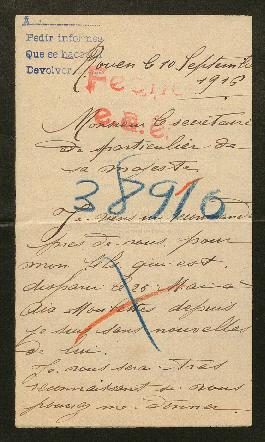 Pedir informes
Que se haga
Devolver
Rouen le 10 Septembre
1916
Fecho
Monsieur le secretaire
de particulier de
sa majeste
38916
Je viens
pres de vous pour
mon fils qui est
disparu le 25 Mai a
depuis
je suis sans nouvelles
de lui.
Je vous serai tres
reconnaissent si vous
pouvez me donner